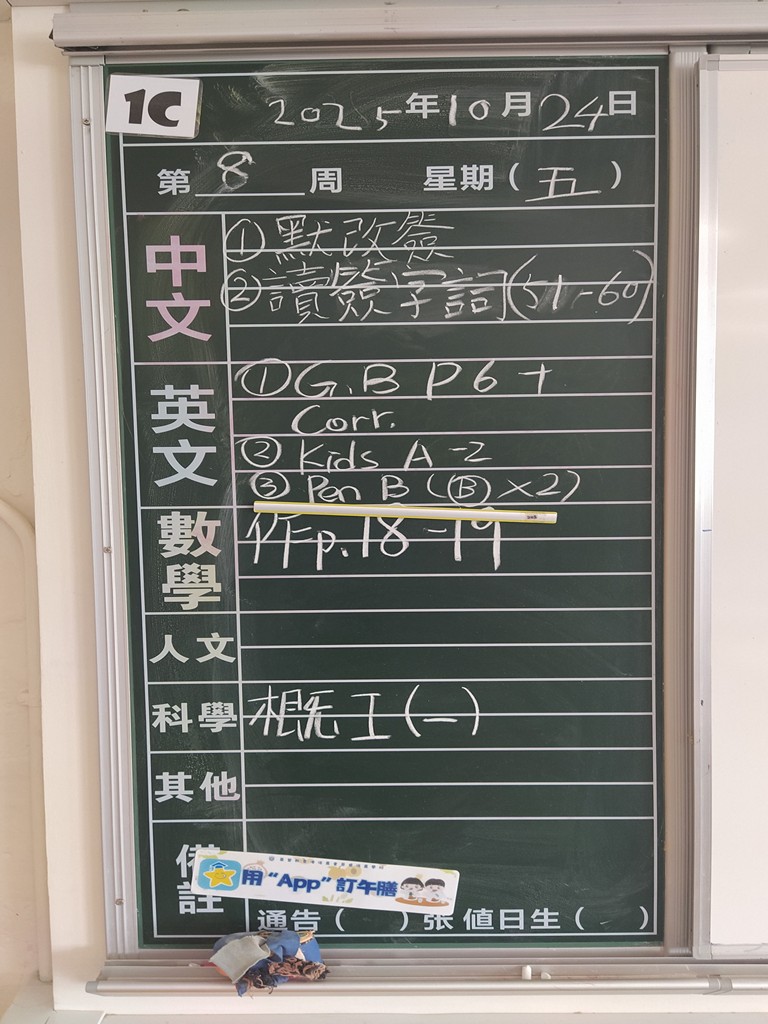 1C
2025年10月24日
第8周 星期(五)
中文
①默改簽
②讀簽字詞(51-60)
英文
①G.B P6+
Corr.
② Kids A-2
③ Pen B (Ⓑ×2)
數學
作p.18-19
人文
科學
概 I (一)
其他
備註
用“App”訂午膳
通告( )張 值日生( )